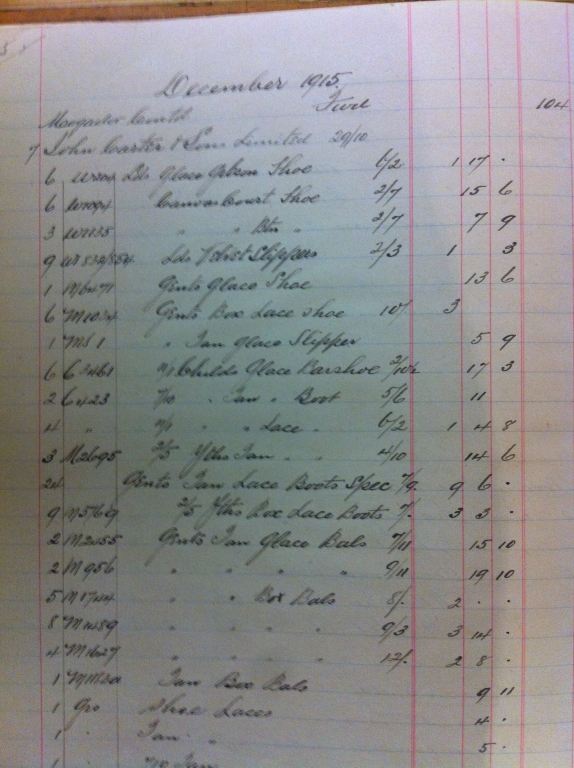 December 1915.
Mogador Contd Fwd 104
7 John Carter & Sons Limited 29/10
6 W2204 Lds Glace Gibson Shoe 6/2 1 17 .
6 W1094 Canvas Court Shoe 2/7 15 6
3 W1135 " " Btn 2/7 7 9
9 W832/854 Lds Velvet Slippers 2/3 1 3
1 M6471 Gents Glace Shoe 13 6
6 M1034 Gents Box Lace Shoe 10/ 3
1 " Tan Glace Slipper 5 9
6 C3461 Childs Glace Barshoe 2/10½ 17 3
2 C423 7/10 " Tan " Boot 5/6 11
4 " " " Lace " 6/2 1 4 8
3 M2695 2/5 Yths Tan " " 4/10 14 6
24 Gents Tan Lace Boots Spec 7/9 9 6 .
9 M5769 2/5 Yths Box Lace Boots 7/. 3 3 .
2 M2055 Gents Tan Glace Bals 7/11 15 10
2 M956 " " " " 9/11 19 10
5 M1744 " " Box Bals 8/. 2 . .
8 M1489 " " " " 9/3 3 14 .
4 M1627 " " " " 12/. 2 8 .
1 Tan Box Bals 9 11
1 Gro Shoe Laces 4 .
1 " Tan " 5 .
1 " Tan